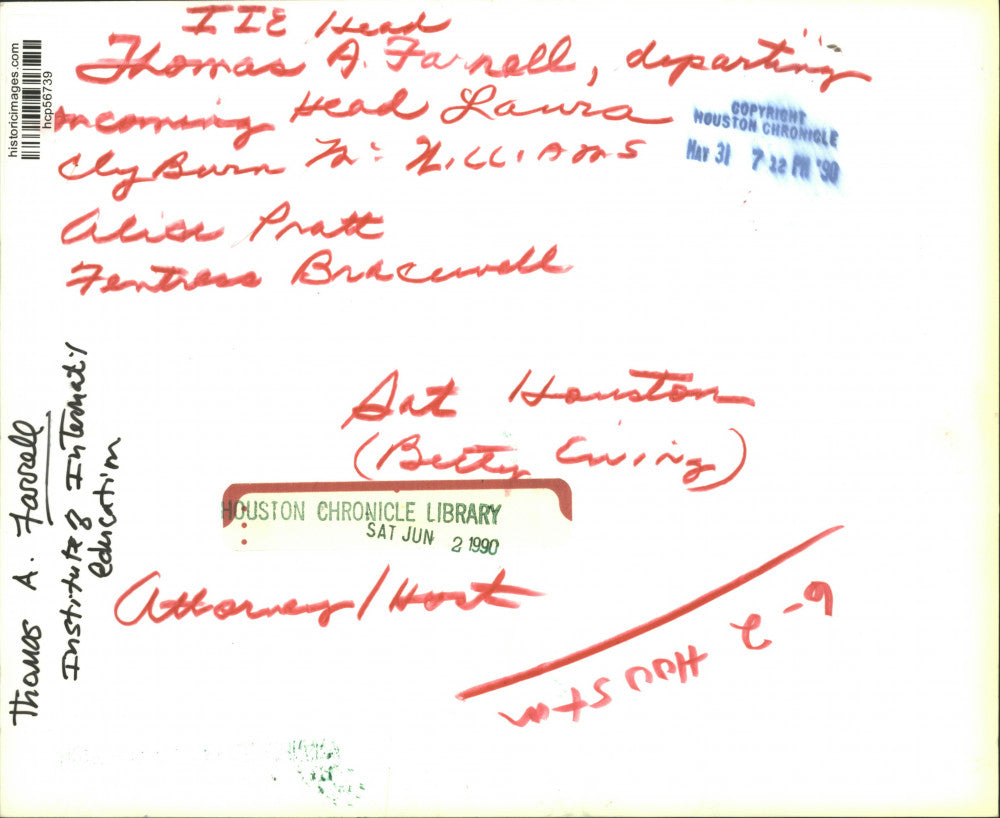 IIE Head
Thomas A. Farrell, departing
incoming Head Laura
ClyBurn Mc Williams
Alice Pratt
Fentress Bracewell
COPYRIGHT
HOUSTON CHRONICLE
MAY 31 7 32 PM '90
Sat Houston
(Betty Ewing)
HOUSTON CHRONICLE LIBRARY
SAT JUN 2 1990
Attorney/Host
6-2 Houston
historicimages.com
hcp56739
Thomas A. Farrell
Institute of Internat'l
education